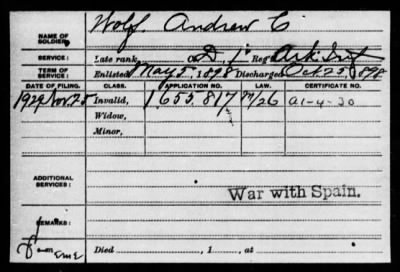 NAME OF SOLDIER: Wolf, Andrew C
SERVICE: Late rank, Co. D, 1 Reg't Ark. Inf
TERM OF SERVICE: Enlisted May 5, 1898 Discharged Oct. 25, 1898
DATE OF FILING. CLASS. APPLICATION NO. LAW. CERTIFICATE NO.
1929 Nov. 25 Invalid, 1655.817 M/26 a1-4-30
Widow,
Minor,
ADDITIONAL SERVICES:
War with Spain.
REMARKS:
Died , 1 , at